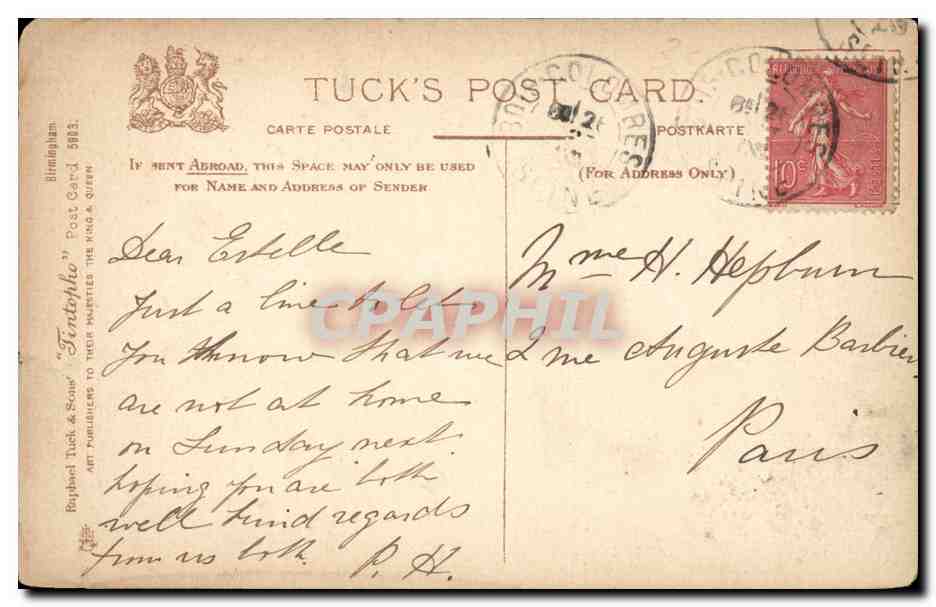 TUCK'S POST CARD.
CARTE POSTALE
POSTKARTE
IF SENT ABROAD, THIS SPACE MAY ONLY BE USED
FOR NAME AND ADDRESS OF SENDER
(FOR ADDRESS ONLY)
Birmingham.
Raphael Tuck & Sons' "Tintopho" Post Card 5903.
ART PUBLISHERS TO THEIR MAJESTIES THE KING & QUEEN
10c
Dear Estelle
Just a line to let
you know that we
are not at home
on Sunday next
hoping you are both
well kind regards
from us both. P. H.
Mme H. Hepburn
2 rue Auguste Barbier
Paris
BOIS-COLOMBES
CPAPHIL